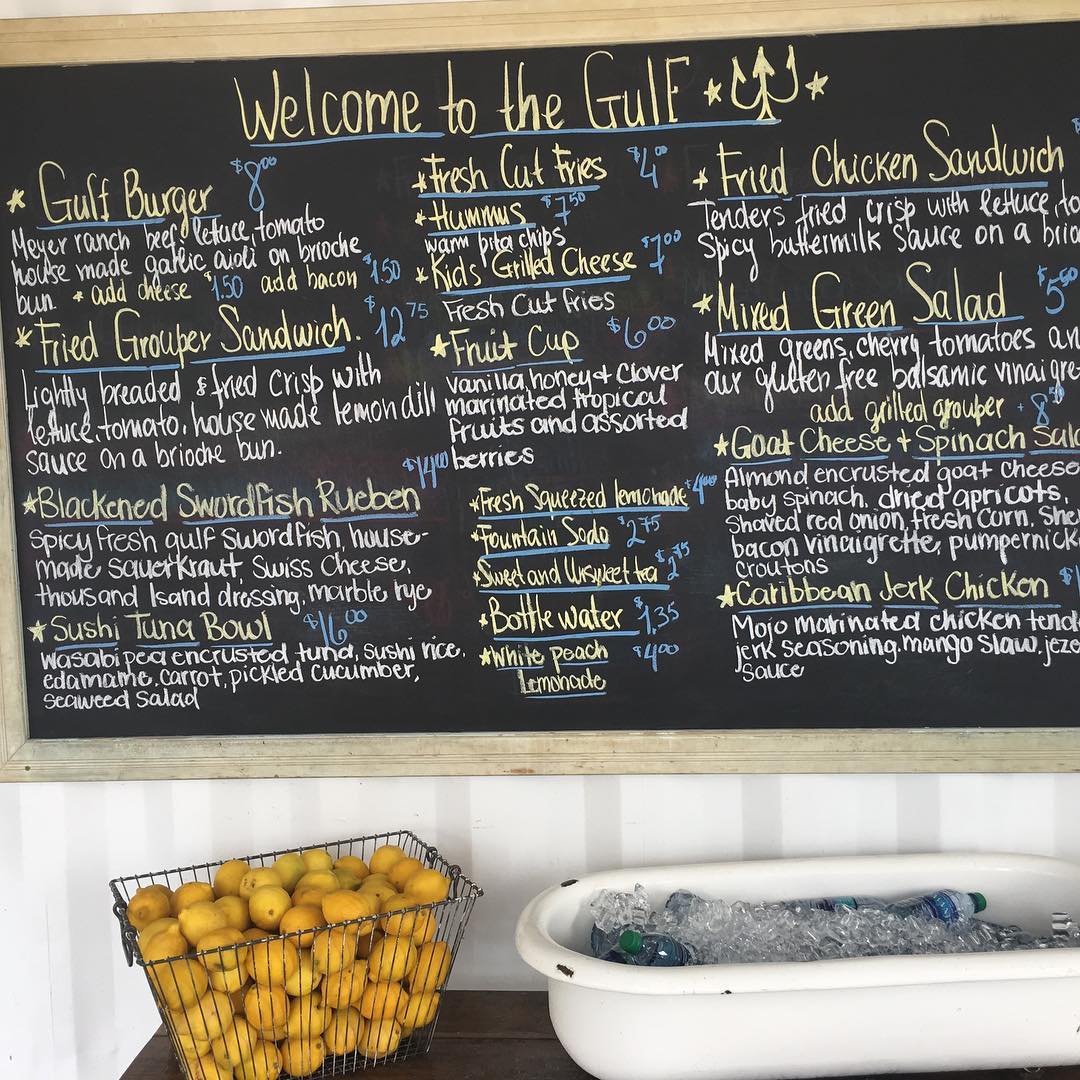 Welcome to the Gulf
Gulf Burger $8.00
Meyer ranch beef, lettuce, tomato
house made garlic aioli on brioche
bun. * add cheese $1.50 add bacon $1.50
Fried Grouper Sandwich. $12.75
Lightly breaded & fried crisp with
lettuce, tomato, house made lemon dill
sauce on a brioche bun.
$14.00
Blackened Swordfish Rueben
Spicy fresh gulf swordfish, house-
made sauerkraut, Swiss cheese,
thousand Isand dressing, marble rye
Sushi Tuna Bowl $16.00
Wasabi pea encrusted tuna, sushi rice,
edamame, carrot, pickled cucumber,
seaweed salad
Fresh Cut Fries $4.00
Hummus $7.50
warm pita chips
Kids Grilled Cheese $7.00
Fresh Cut fries
Fruit Cup $6.00
vanilla, honey + clover
marinated tropical
fruits and assorted
berries
Fresh Squeezed lemonade $4.00
Fountain Soda $2.75
Sweet and Unsweet tea $2.75
Bottle water $1.35
White peach $4.00
Lemonade
Fried Chicken Sandwich
Tenders fried crisp with lettuce, to
Spicy buttermilk sauce on a brio
Mixed Green Salad $5.50
Mixed greens, cherry tomatoes an
our gluten free balsamic vinaigre
add grilled grouper + 8.50
Goat Cheese + Spinach Sala
Almond encrusted goat cheese
baby spinach, dried apricots,
Shaved red onion, fresh corn, She
bacon vinaigrette, pumpernick
croutons
Caribbean Jerk Chicken $1
Mojo marinated chicken tend
jerk seasoning, mango slaw, jeze
sauce